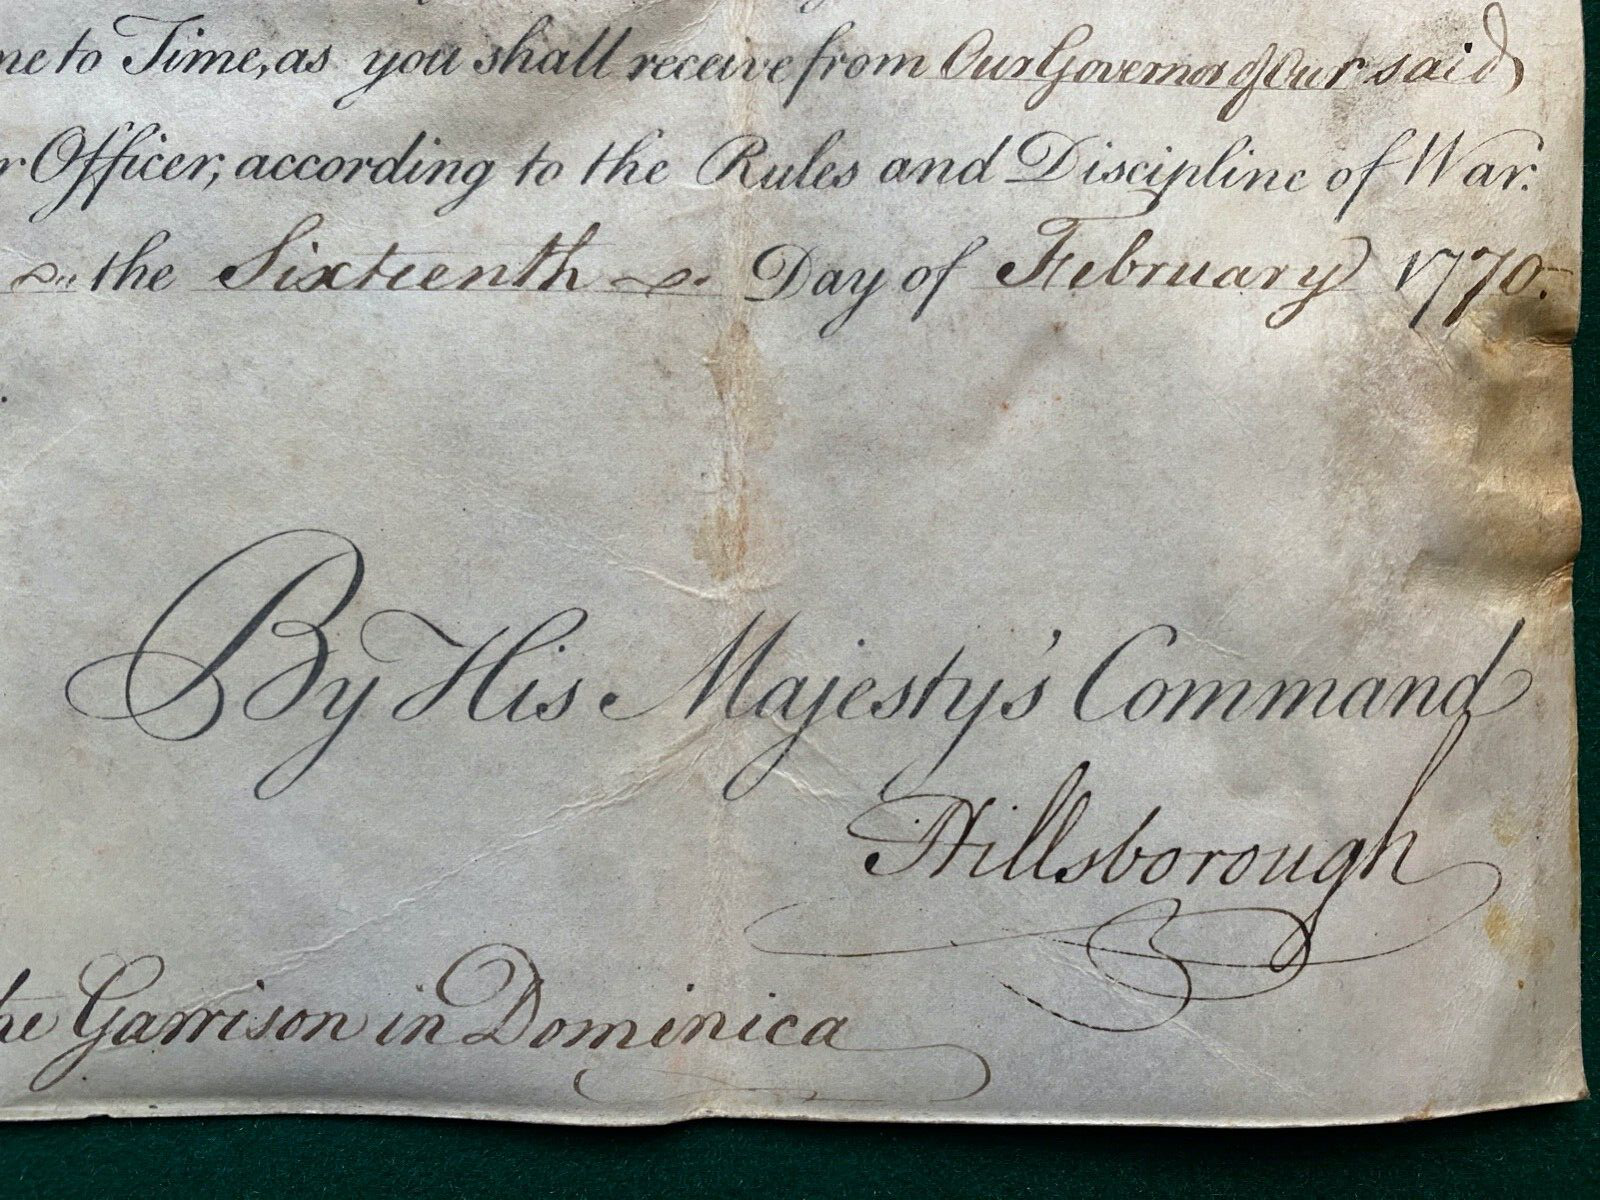 me to Time, as you shall receive from Our Governor of Our said
r Officer, according to the Rules and Discipline of War.
the Sixteenth Day of February 1770.
By His Majesty's Command
Hillsborough
the Garrison in Dominica